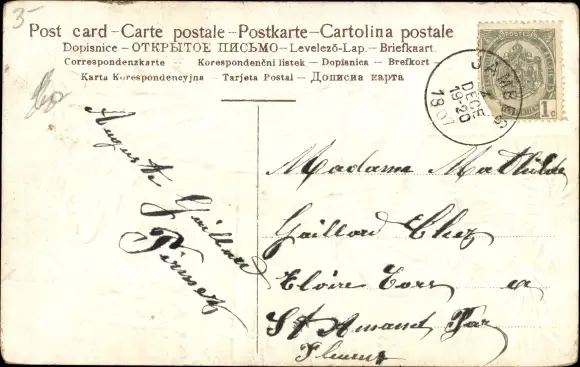 3-
Post card – Carte postale – Postkarte – Cartolina postale
Dopisnice – ОТКРЫТОЕ ПИСЬМО – Levelező-Lap. – Briefkaart.
Correspondenzkarte – Korespondenční listek – Dopisnica – Brefkort –
Karta Korespondencyjna – Tarjeta Postal – Дописна карта
JAMBES
DECE
19-20
1907
1c
Auguste Gaillard
Madame Mathilde
Gaillard Chez
St Amand Par
Fleurus